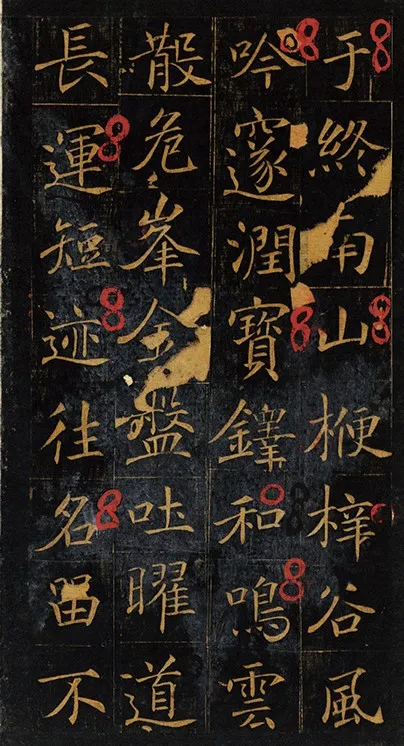 于終南山楩梓谷風
吟邃潤寶鐸和鳴雲
散危峯金盤吐曜道
長運短迹往名留不